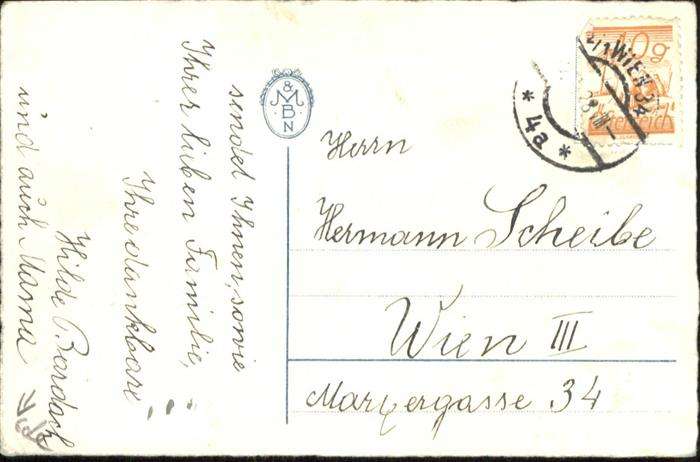 sendet Ihnen, sowie
Ihrer lieben Familie,
Ihre dankbare
Hilde Bardach
und auch Mama
& M B N
Herrn
Hermann Scheibe
Wien III
Marxergasse 34
10g
Österreich
WIEN 34
* 4a *